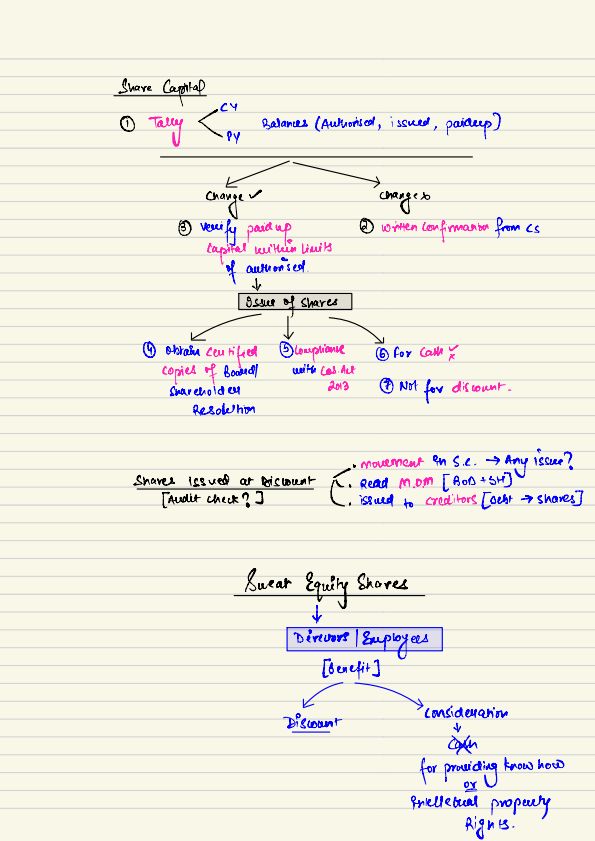 Share Capital
① Tally CY Balances (Authorised, issued, paidup)
PY
Change ✓ Change x
③ Verify paid up ② Written Confirmation from CS
Capital within limits
of authorised.
Issue of Shares
④ Obtain Certified ⑤ Compliance ⑥ For Cash ✓ x
Copies of Board/ with Cos. Act ⑦ Not for discount.
Shareholder 2013
Resolution
Shares Issued at Discount
[Audit check?]
• movement in S.C. → Any issue?
• Read M.O.M [BoD + SH]
• issued to creditors [Debt → shares]
Sweat Equity Shares
Directors | Employees
[Benefit]
Discount Consideration
Cash
for providing know how
or
Intellectual property
Rights.